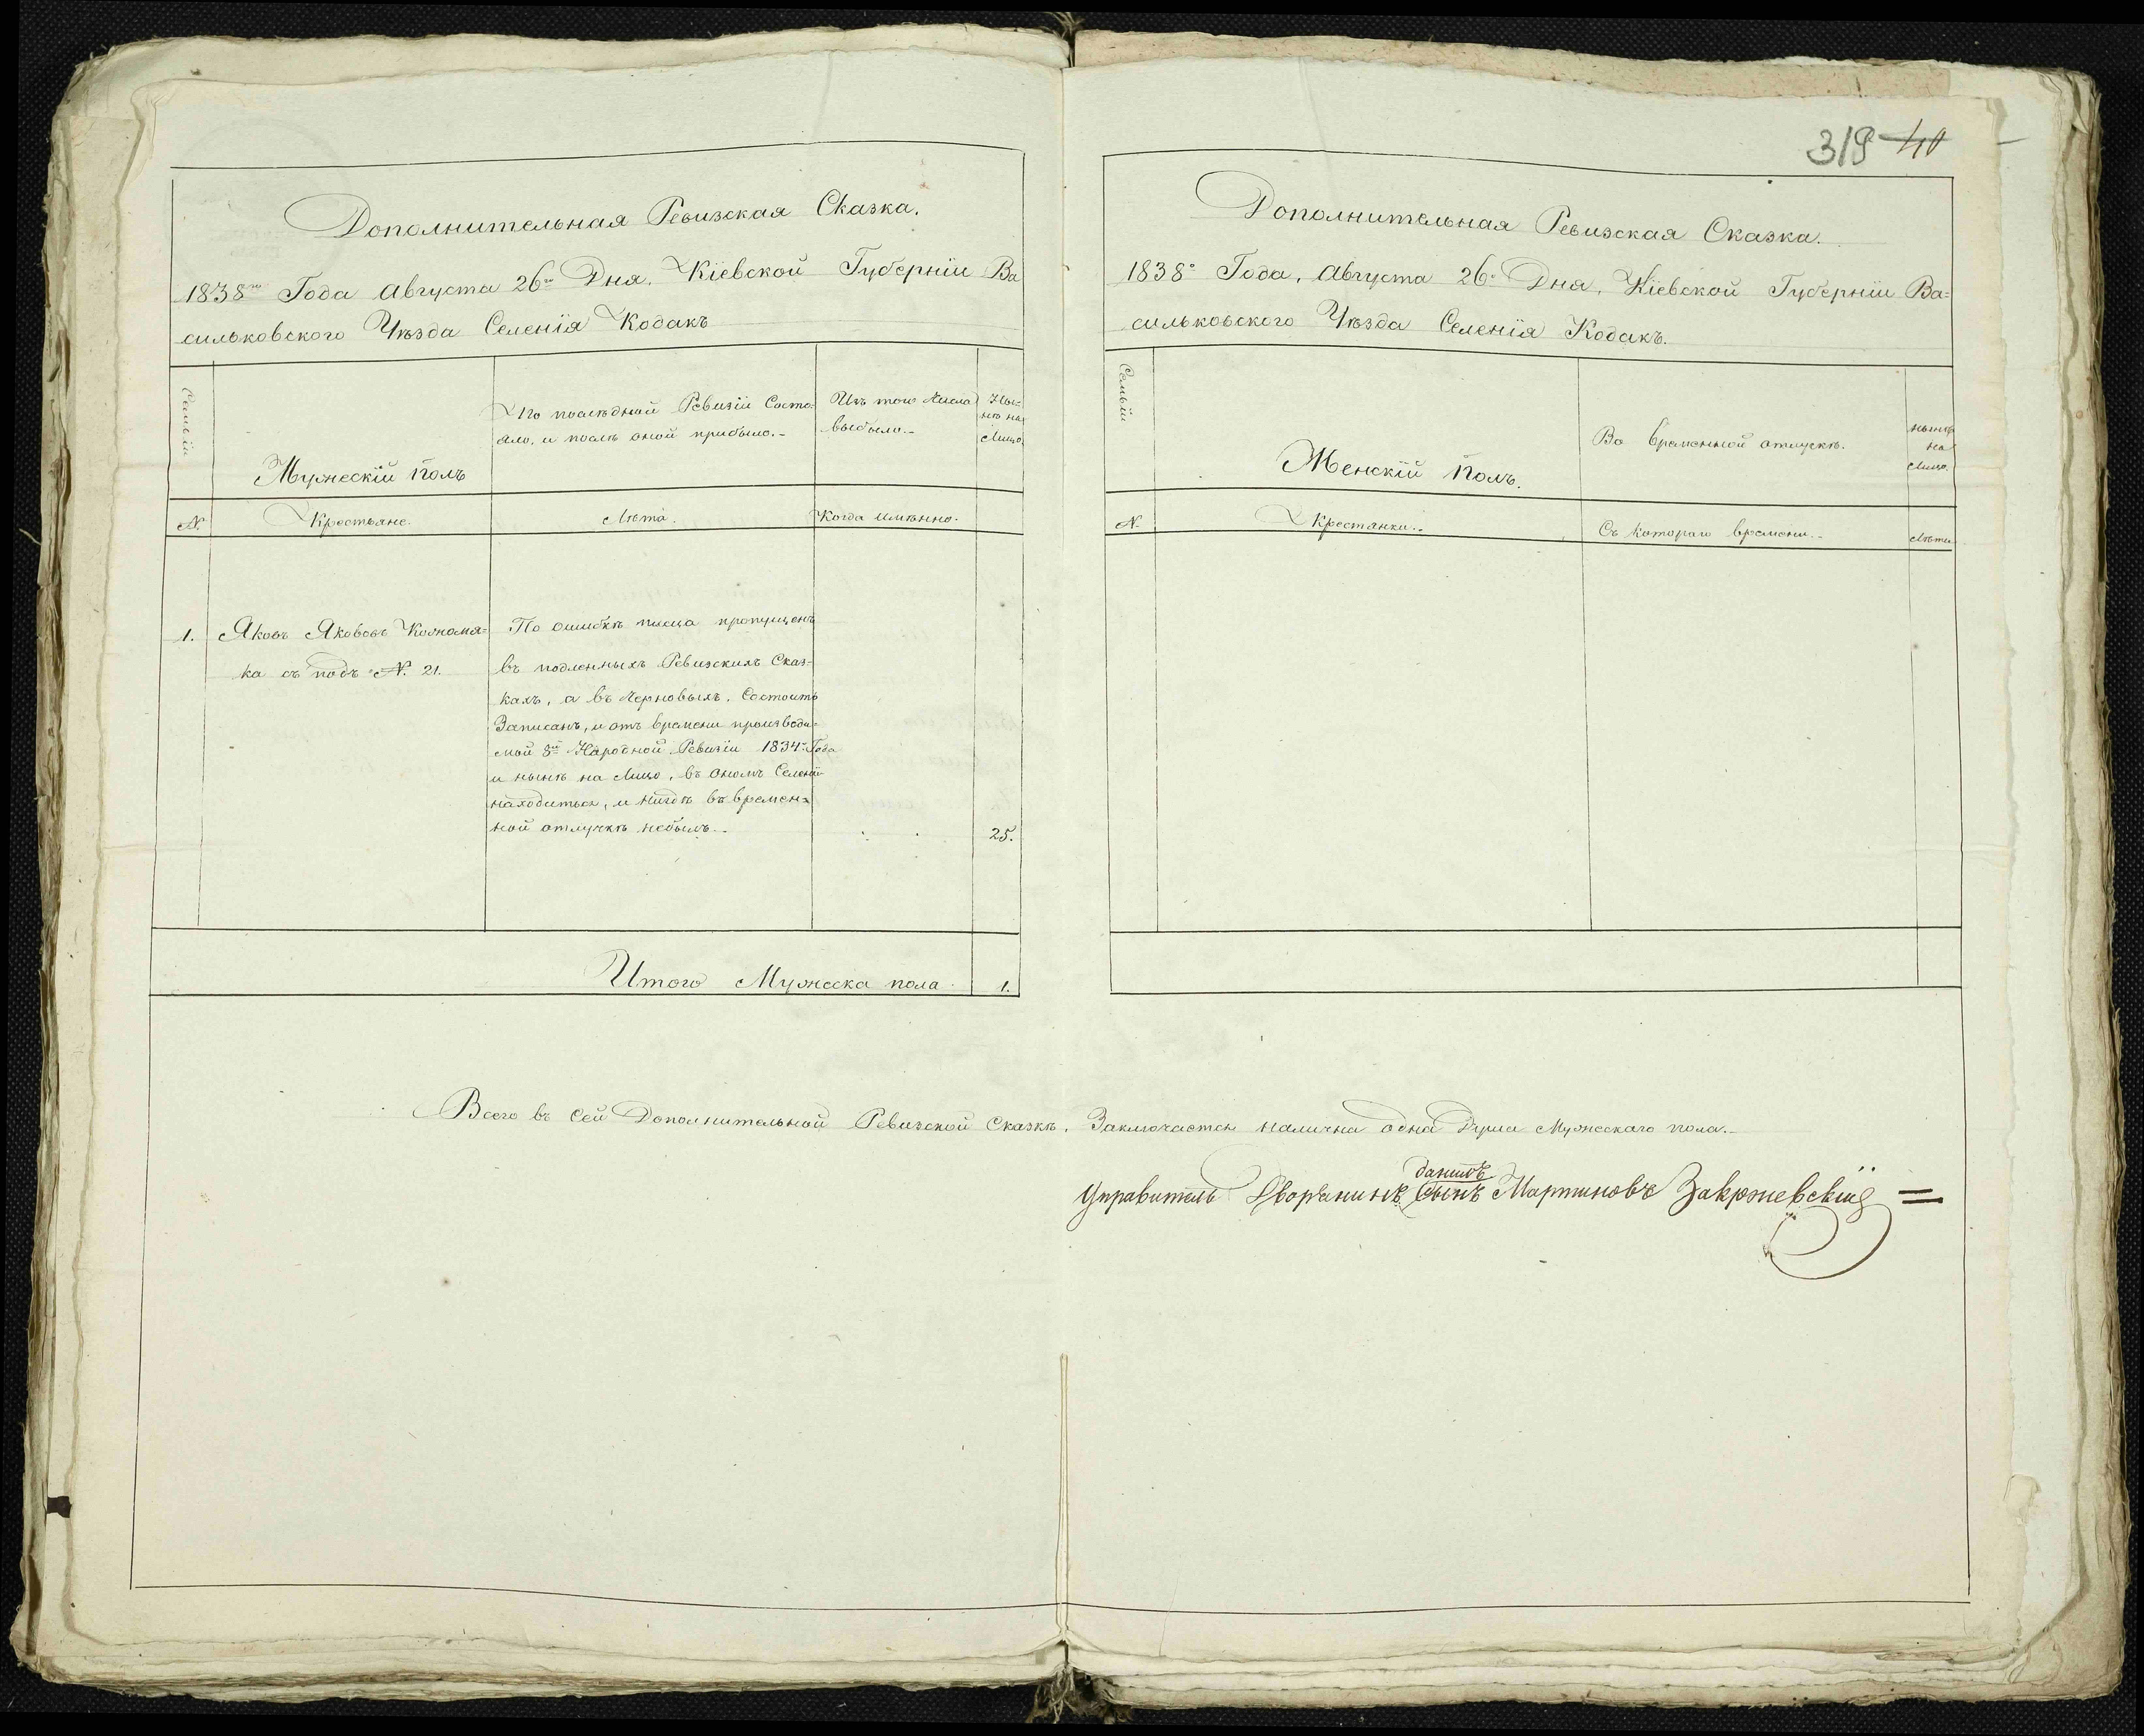 Дополнительная Ревизская Сказка.
1838го Года Августа 26го Дня, Кіевской Губерніи Ва
сильковского Уѣзда Селенія Кодакъ
Семьи
Мужескій Полъ
По послѣдной Ревизіи Состо-
яло, и послѣ оной прибыло.-
Изъ того Числа
выбыло.-
Ны-
нѣ на
Лицо.
№.
Крестьяне.
Лѣта.
Когда имѣнно.
1.
Яковъ Якововъ
ка съ подъ № 21.
По ошибкѣ писца пропущенъ
въ подленныхъ Ревизскихъ Сказ-
кахъ, а въ Черновыхъ, Состоитъ
Записанъ, и отъ времени производи-
мой 8й Народной Ревизіи 1834го Года
и нынѣ на Лицо, въ ономъ Селеніи
находиться, и нигдѣ въ времен=
ной отлучкѣ небылъ.-
25.
Итого Мужеска пола
1.
319 40
Дополнительная Ревизская Сказка.
1838го Года, Августа 26го Дня, Кіевской Губерніи Ва=
сильковского Уѣзда Селенія Кодакъ.
Семьи
Женскій Полъ.
Во временной отлучкѣ.
нынѣ
на
Лицо.
№
Крестянки..
Съ котораго времени.-
Лѣта
Всего въ Сей Дополнительной Ревизской Сказкѣ, Заключается налична одна Душа Мужескаго пола.-
данилъ
Управитель Дворанинъ сынъ Мартиновъ Закржевскій =